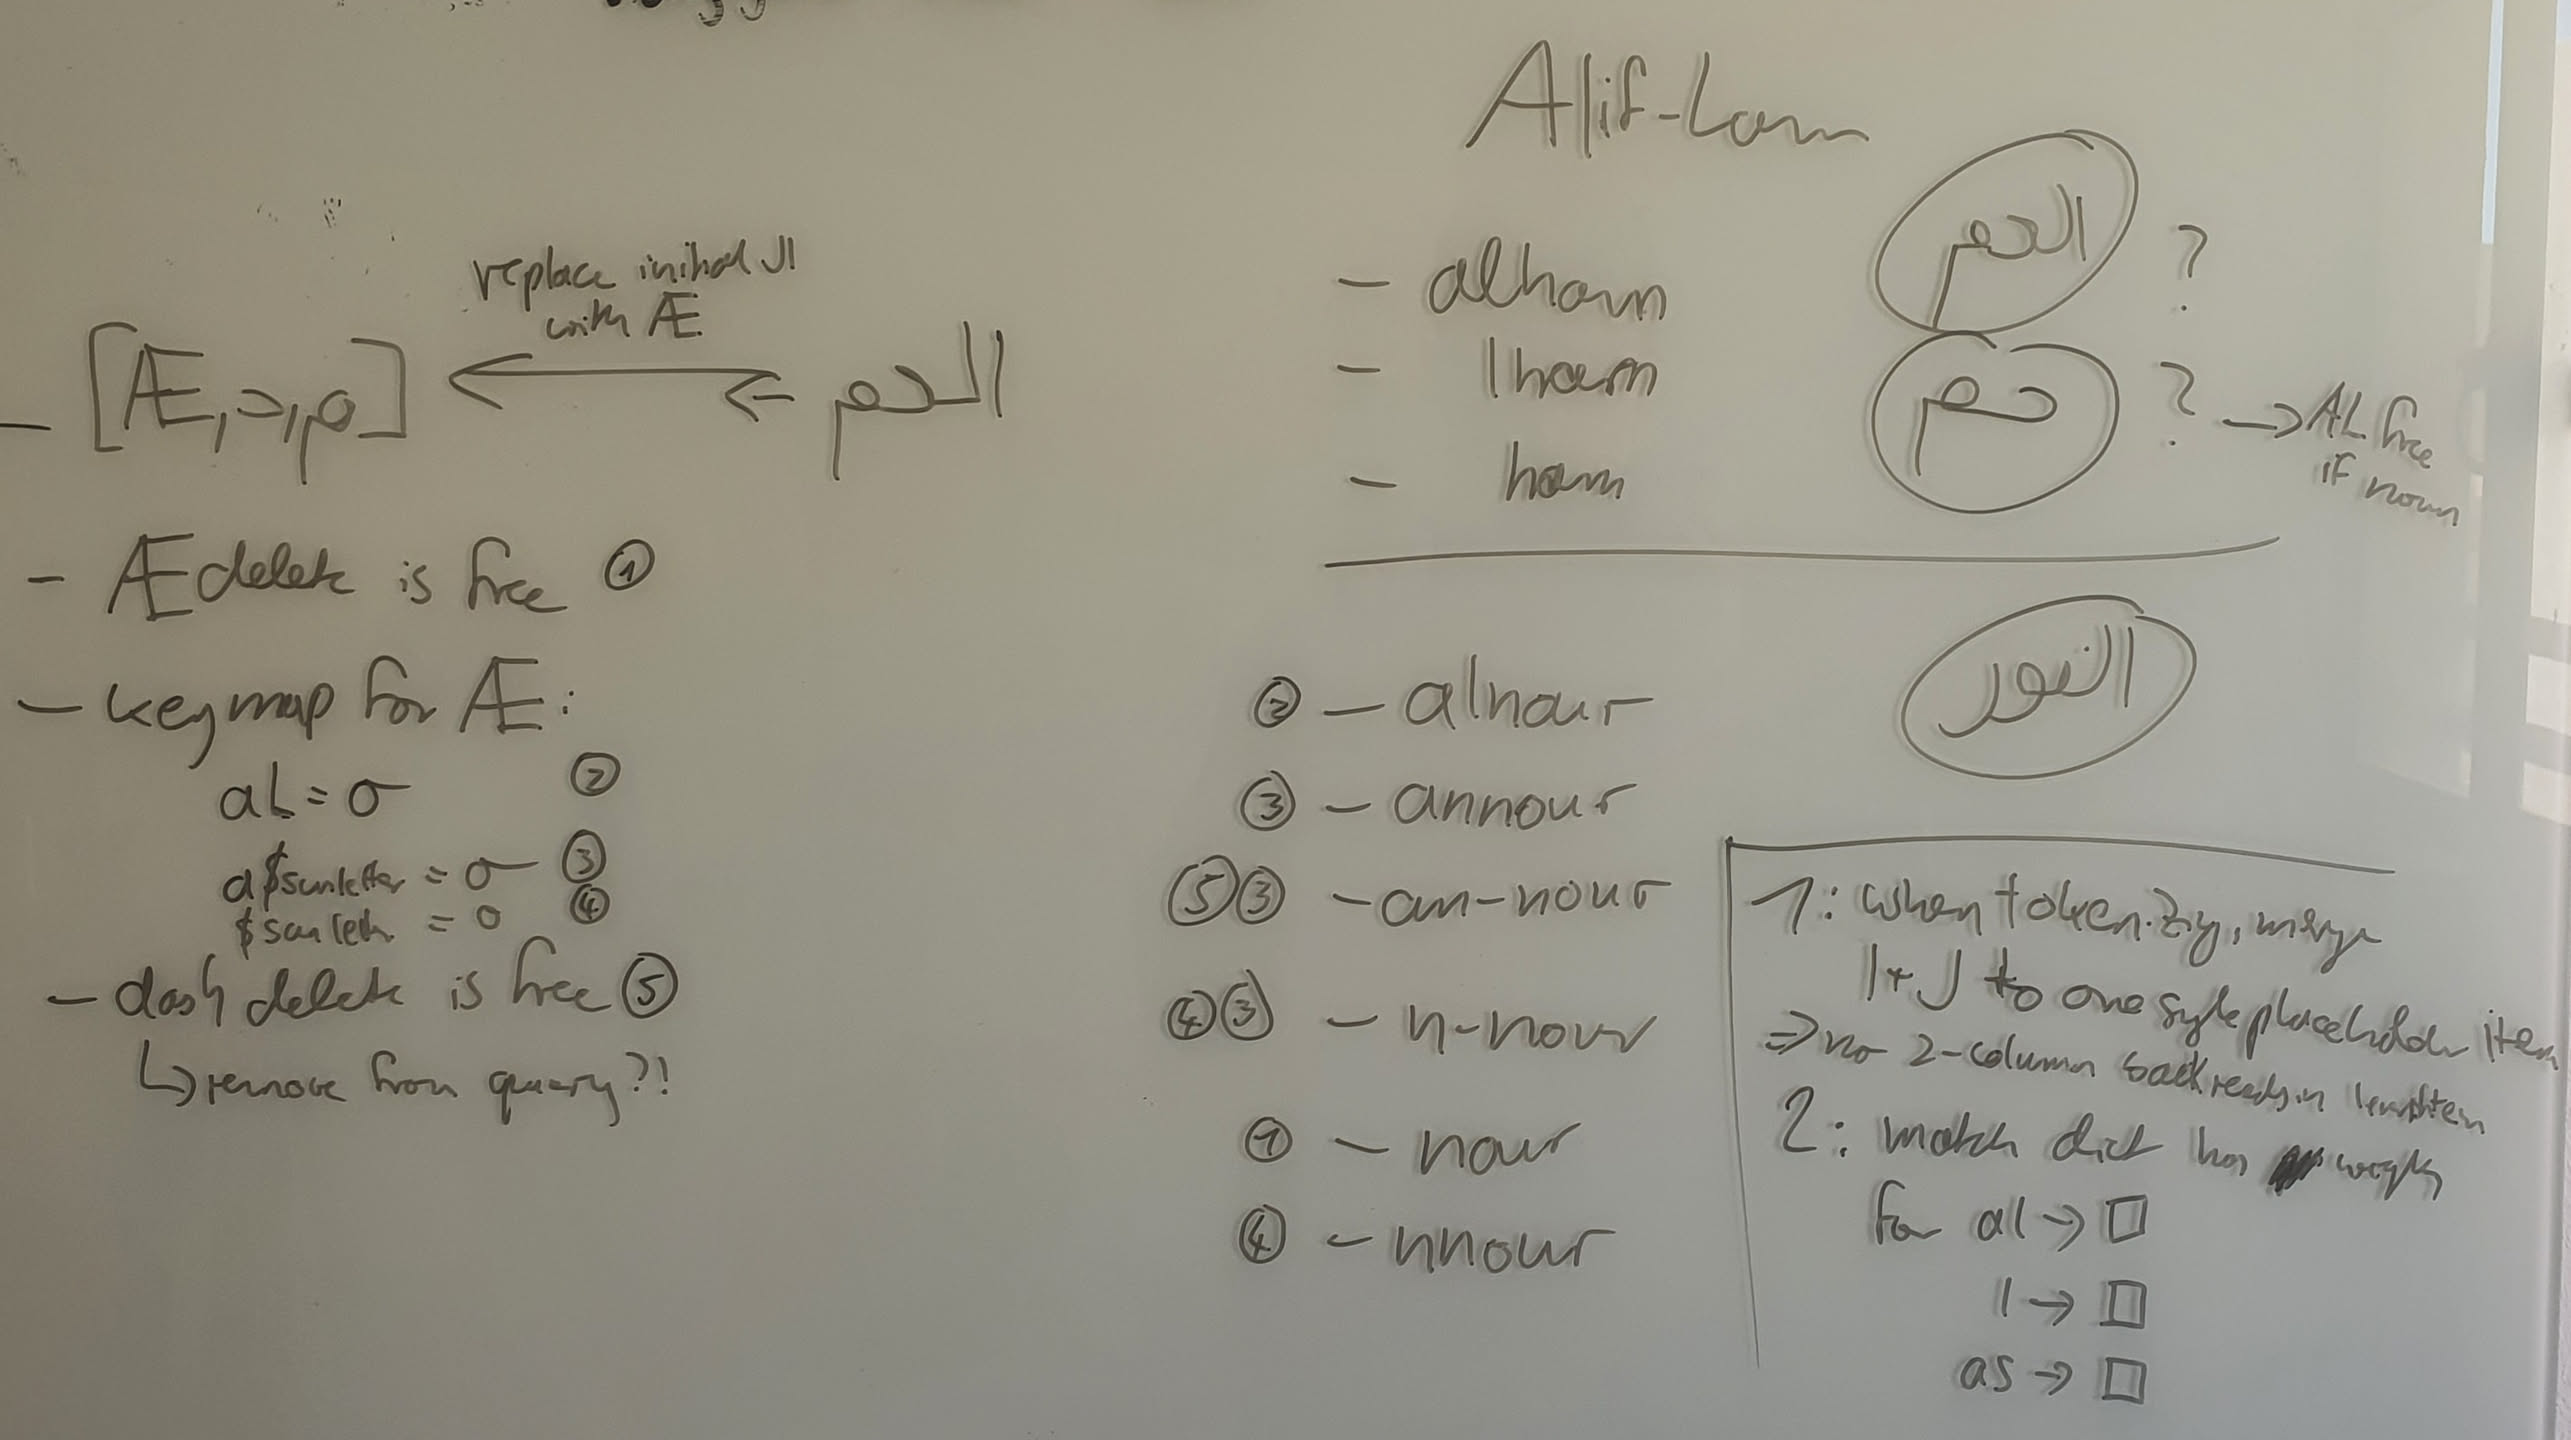 Alif-Lam
- alham
الحم ?
- lham
حم ? → AL free if noun
- ham
replace initial ال
with Æ
- [Æ,ح,م] ← ← الحم
- Æ delete is free ①
- keymap for Æ:
al = 0 ②
a$sunletter = 0 ③
$sunlett. = 0 ④
- dash delete is free ⑤
↳ remove from query?!
النور
② - alnour
③ - annour
⑤③ - an-nour
④③ - n-nour
① - nour
④ - nnour
1: when tokenizig, merge
ا + ل to one placeholder item
⇒ no 2-column back reads in
2: match dict has weights
for al → □
l → □
as → □